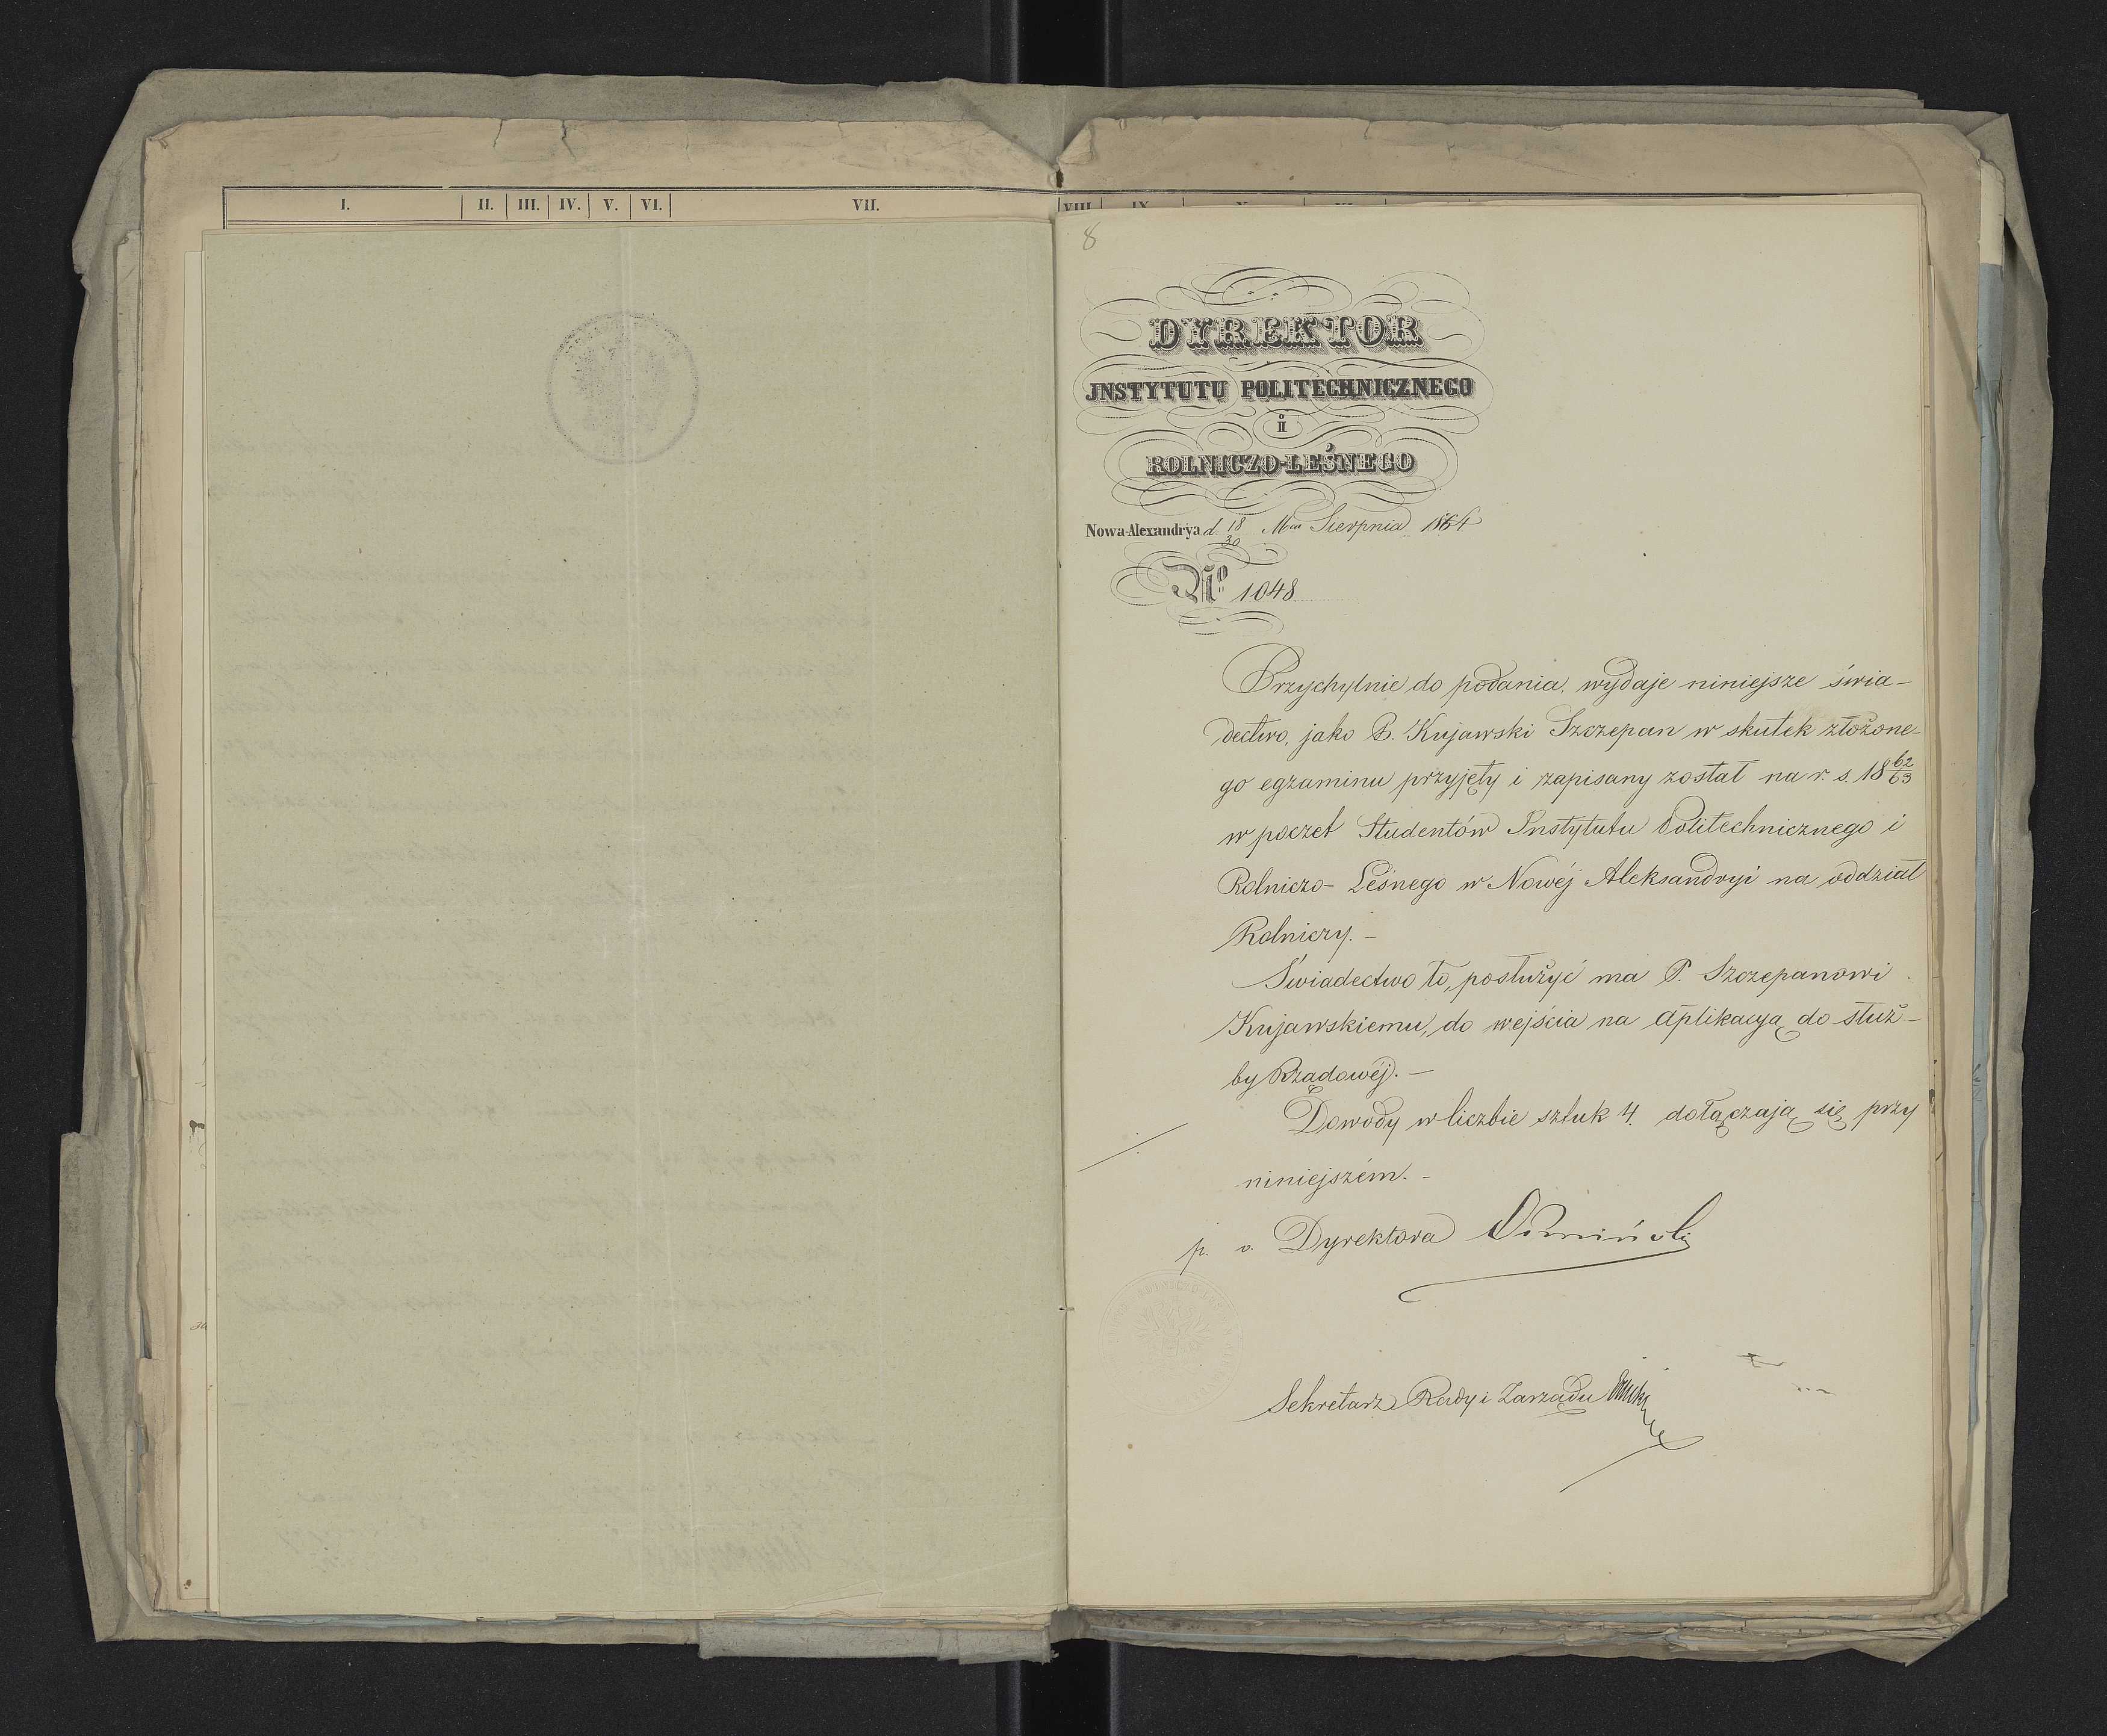 I. II. III. IV. V. VI. VII.
VIII. IX. X. XI.
8
DYREKTOR
JNSTYTUTU POLITECHNICZNEGO
i
ROLNICZO-LEŚNEGO
Nowa-Alexandrya d. 18/30 Mca Sierpnia 1864
No 1048
Przychylnie do podania, wydaje niniejsze świa-
dectwo, jako P. Kujawski Szczepan w skutek złożone-
go egzaminu przyjęty i zapisany został na r. s. 18 62/63
w poczet Studentów Instytutu Politechnicznego i
Rolniczo-Leśnego w Nowéj Aleksandryi na oddział
Rolniczy. –
Świadectwo to, posłużyć ma P. Szczepanowi
Kujawskiemu, do wejścia na aplikacyą do służ-
by Rządowéj. –
Dowody w liczbie sztuk 4. dołączają się przy
niniejszém. –
p. o. Dyrektora
Sekretarz Rady i Zarządu